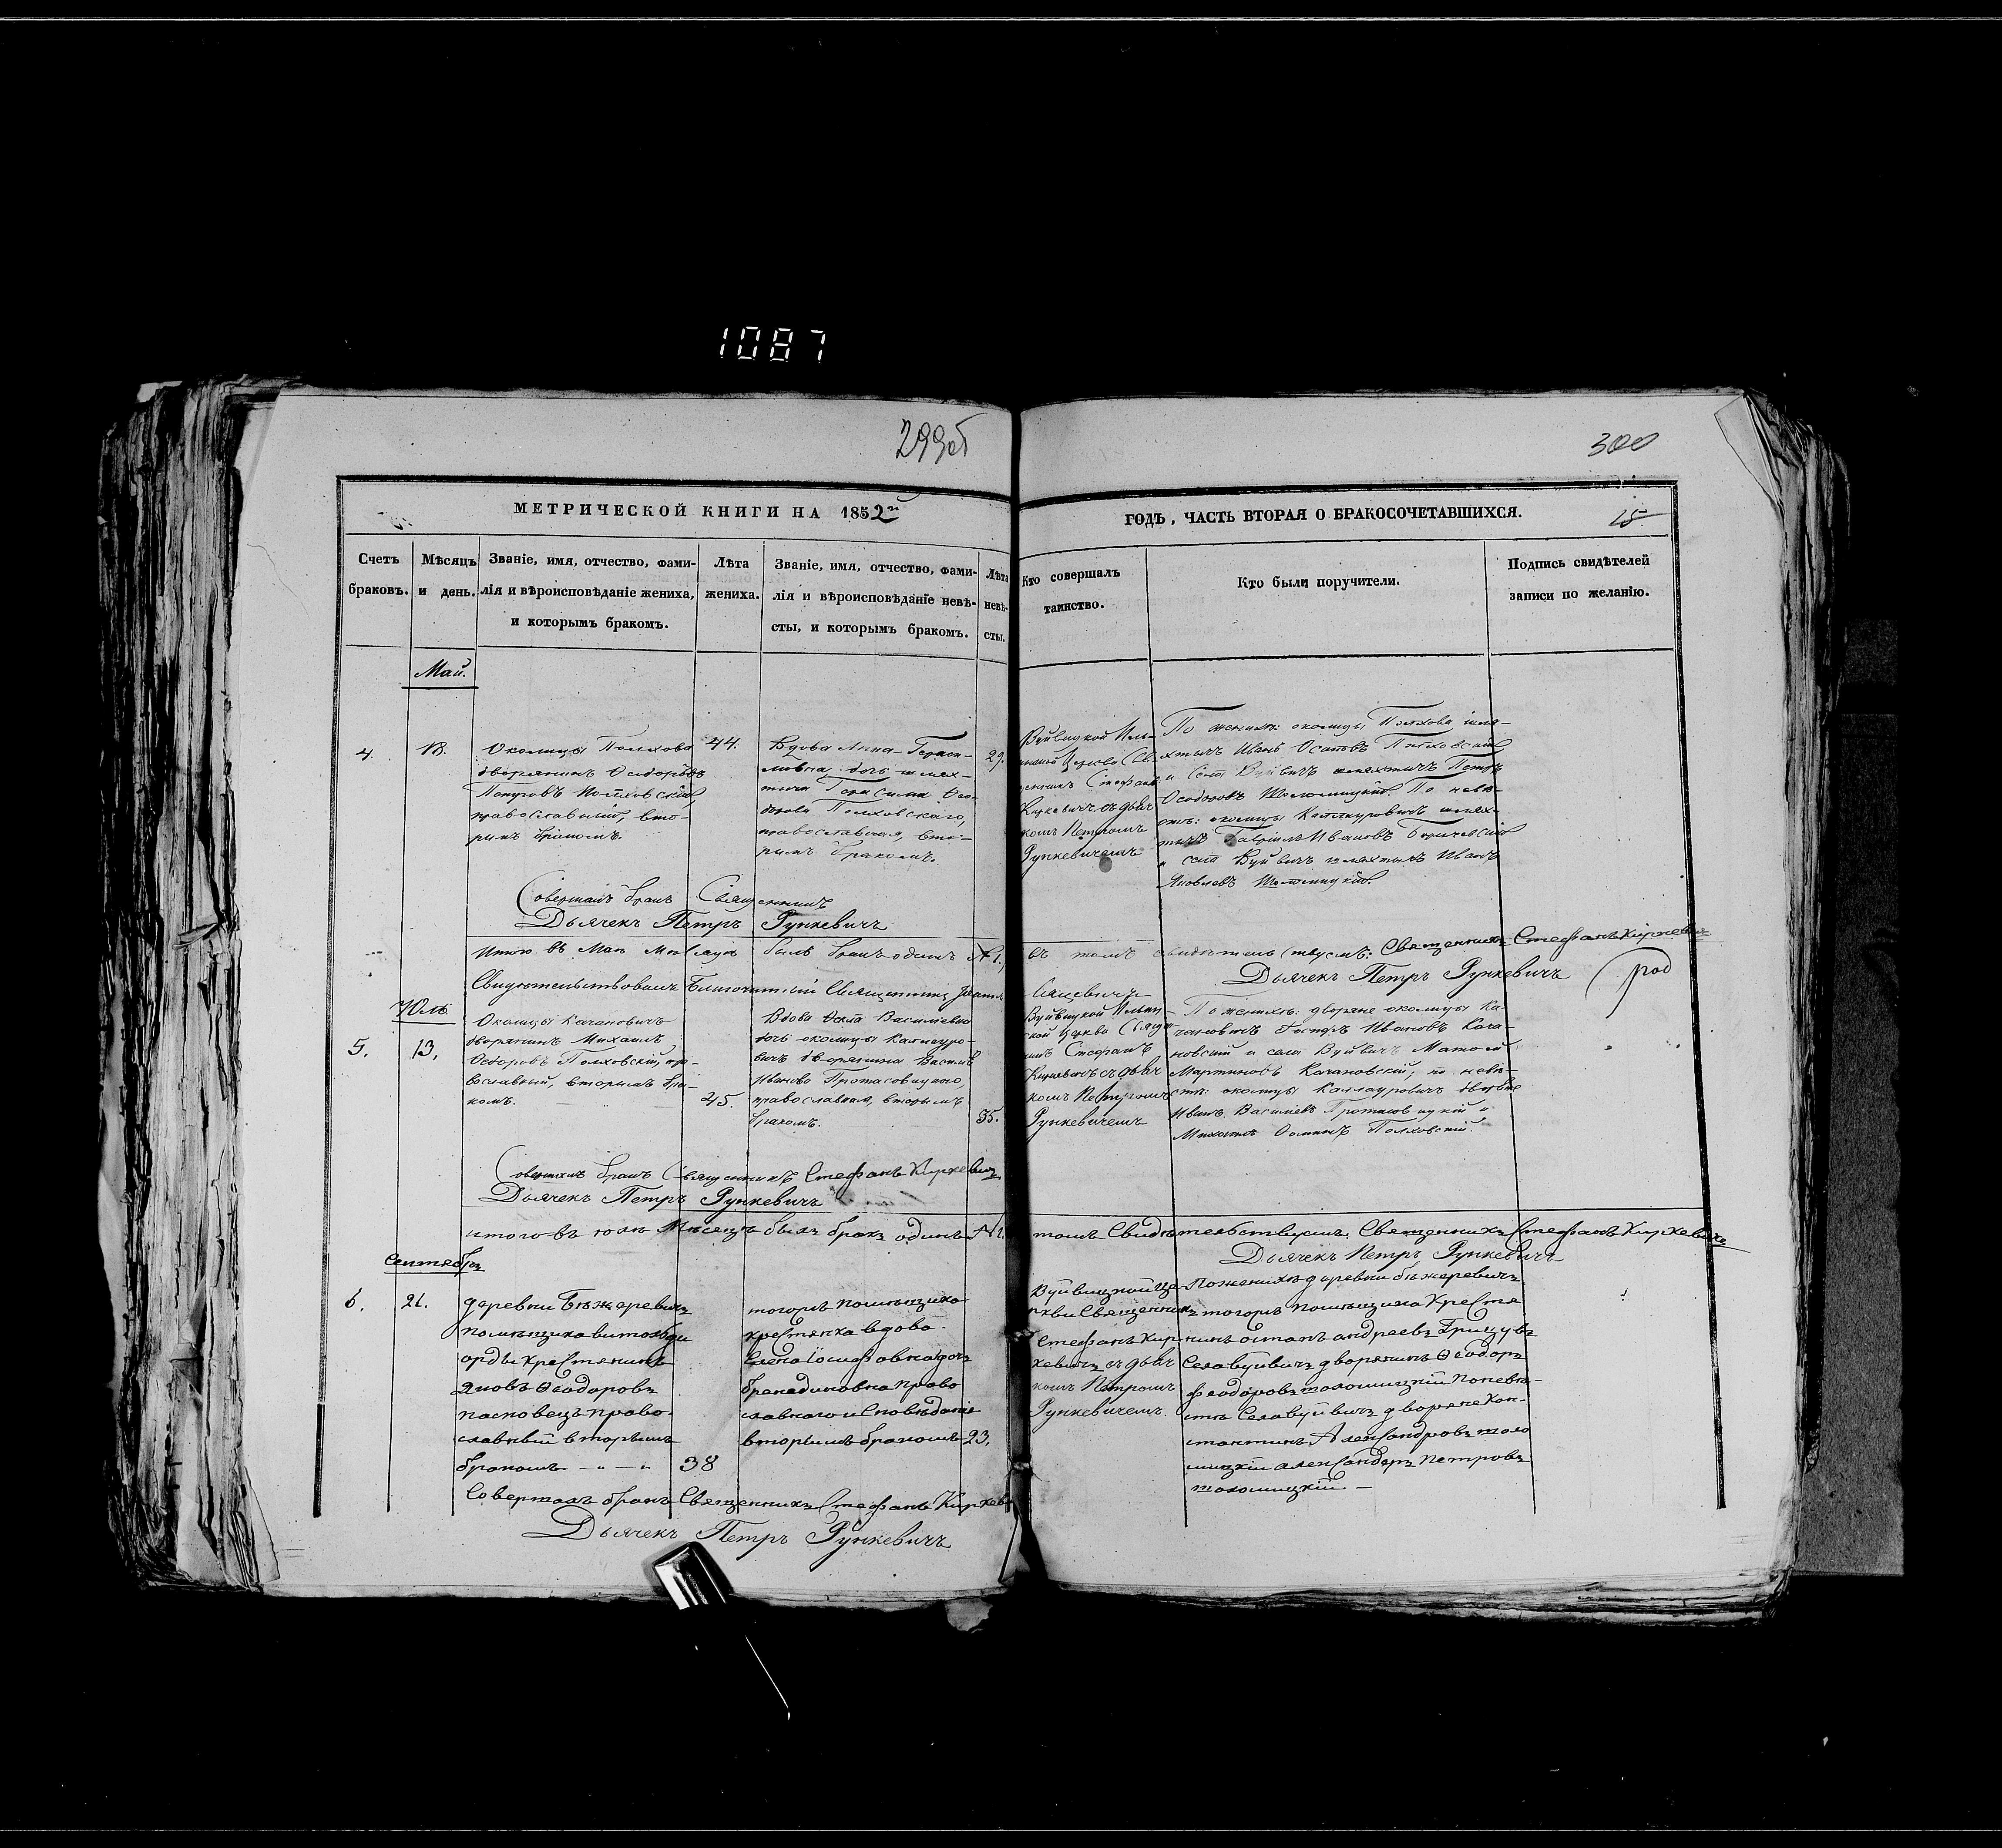 1087
299об
300
МЕТРИЧЕСКОЙ КНИГИ НА 1852й
ГОДЪ, ЧАСТЬ ВТОРАЯ О БРАКОСОЧЕТАВШИХСЯ.
15
Счетъ
браковъ.
Мѣсяцъ
и день.
Званіе, имя, отчество, фами-
лія и вѣроисповѣданіе жениха,
и которымъ бракомъ.
Лѣта
жениха.
Званіе, имя, отчество, фами-
лія и вѣроисповѣданіе невѣ-
сты, и которымъ бракомъ.
Лѣта
невѣ-
сты.
Кто совершалъ
таинство.
Кто были поручители.
Подпись свидѣтелей
записи по желанію.
Май.
4.
18.
Околицы Полхова
дворянинъ Ѳеодоръ
Полховскій,
православный, вто-
рымъ бракомъ.
44.
Вдова Анна Гераси-
мовна дочь шлях-
тича Герасима Ѳео-
дорова Полховскаго,
православная, вто-
рымъ бракомъ.
29.
Вуйвицкой Иль-
инской Церкви Свя-
щенникъ Стефанъ
Киркевичъ съ дьяч
комъ Петромъ
Рункевичемъ
По женихѣ: околицы Полхова шля-
хтичъ Иванъ Осиповъ Полховскій
и села Вуйвичъ шляхтичъ Петръ
Ѳеодоровъ Шоломицкій. По невѣ-
стѣ: околицы Каллауровичъ шлях-
тичъ Гавріилъ Ивановъ
и села Вуйвичъ шляхтичъ Иванъ
Яковлевъ Шоломицкій.
Совершалъ бракъ Священникъ
Дьячекъ Петръ Рункевичъ
Итого въ Маѣ Мѣсяцѣ былъ бракъ одинъ №1.
въ томъ свидѣтельствуемъ: Священникъ Стефанъ Киркевичъ
Дьячекъ Петръ Рункевичъ
Свидѣтельствовалъ Благочинный Священникъ
Юль
5.
13,
Околицы Качановичъ
дворянинъ Михаилъ
Ѳеодоровъ Полховскій, пра-
вославный, вторымъ бра-
комъ.
45.
Вдова Ѳекла Василіевна
дочь околицы Каллауро-
вичъ дворянина Василія
Иванова Протасовицкаго,
православная, вторымъ
бракомъ.
35.
Вуйвицкой Ильин-
ской Церкви Священ-
никъ Стефанъ
Киркевичъ съ дьяч
комъ Петромъ
Рункевичемъ
По женихѣ: дворяне околицы Ка-
чановичъ Іосифъ Ивановъ Кача-
новскій и села Вуйвичъ Матѳей
Мартиновъ Качановскій; по невѣ-
стѣ: околицы Каллауровичъ дворяне
Иванъ Василіевъ Протасовицкій и
Михаилъ Ѳоминъ Полховскій.
Совершалъ бракъ Священникъ Стефанъ Киркевичъ
Дьячекъ Петръ Рункевичъ
итого въ юлѣ Мѣсяцѣ былъ бракъ одинъ №1.
томъ Свидѣтельствуемъ, Священникъ Стефанъ Киркевичъ
Дьячекъ Петръ Рункевичъ
Сентябрь
6.
21.
деревни Бѣжеревичъ
помѣщика витольда
орды крестянинъ
Яковъ Ѳеодоровъ
право-
славный вторымъ
бракомъ
38
тогожъ помѣщика
крестянка вдова
Елена Іосифовна дочь
право
славнаго исповѣданія
вторымъ бракомъ
23.
Вуйвицкой це-
ркви Священникъ
Стефанъ Кир-
кевичъ съ дьяч
комъ Петромъ
Рункевичемъ.
По женихѣ деревни бѣжеревичъ
тогожъ помѣщика крестя
нинъ остапъ андреевъ
Села вуйвичъ дворянинъ Ѳеодоръ
феодоровъ шоломицкій по невѣ-
стѣ Села вуйвичъ дворяне Кон-
стантинъ Александровъ шоло
мицкій александръ Петровъ
шоломицкій
Совершалъ бракъ Священникъ Стефанъ Киркевичъ
Дьячекъ Петръ Рункевичъ